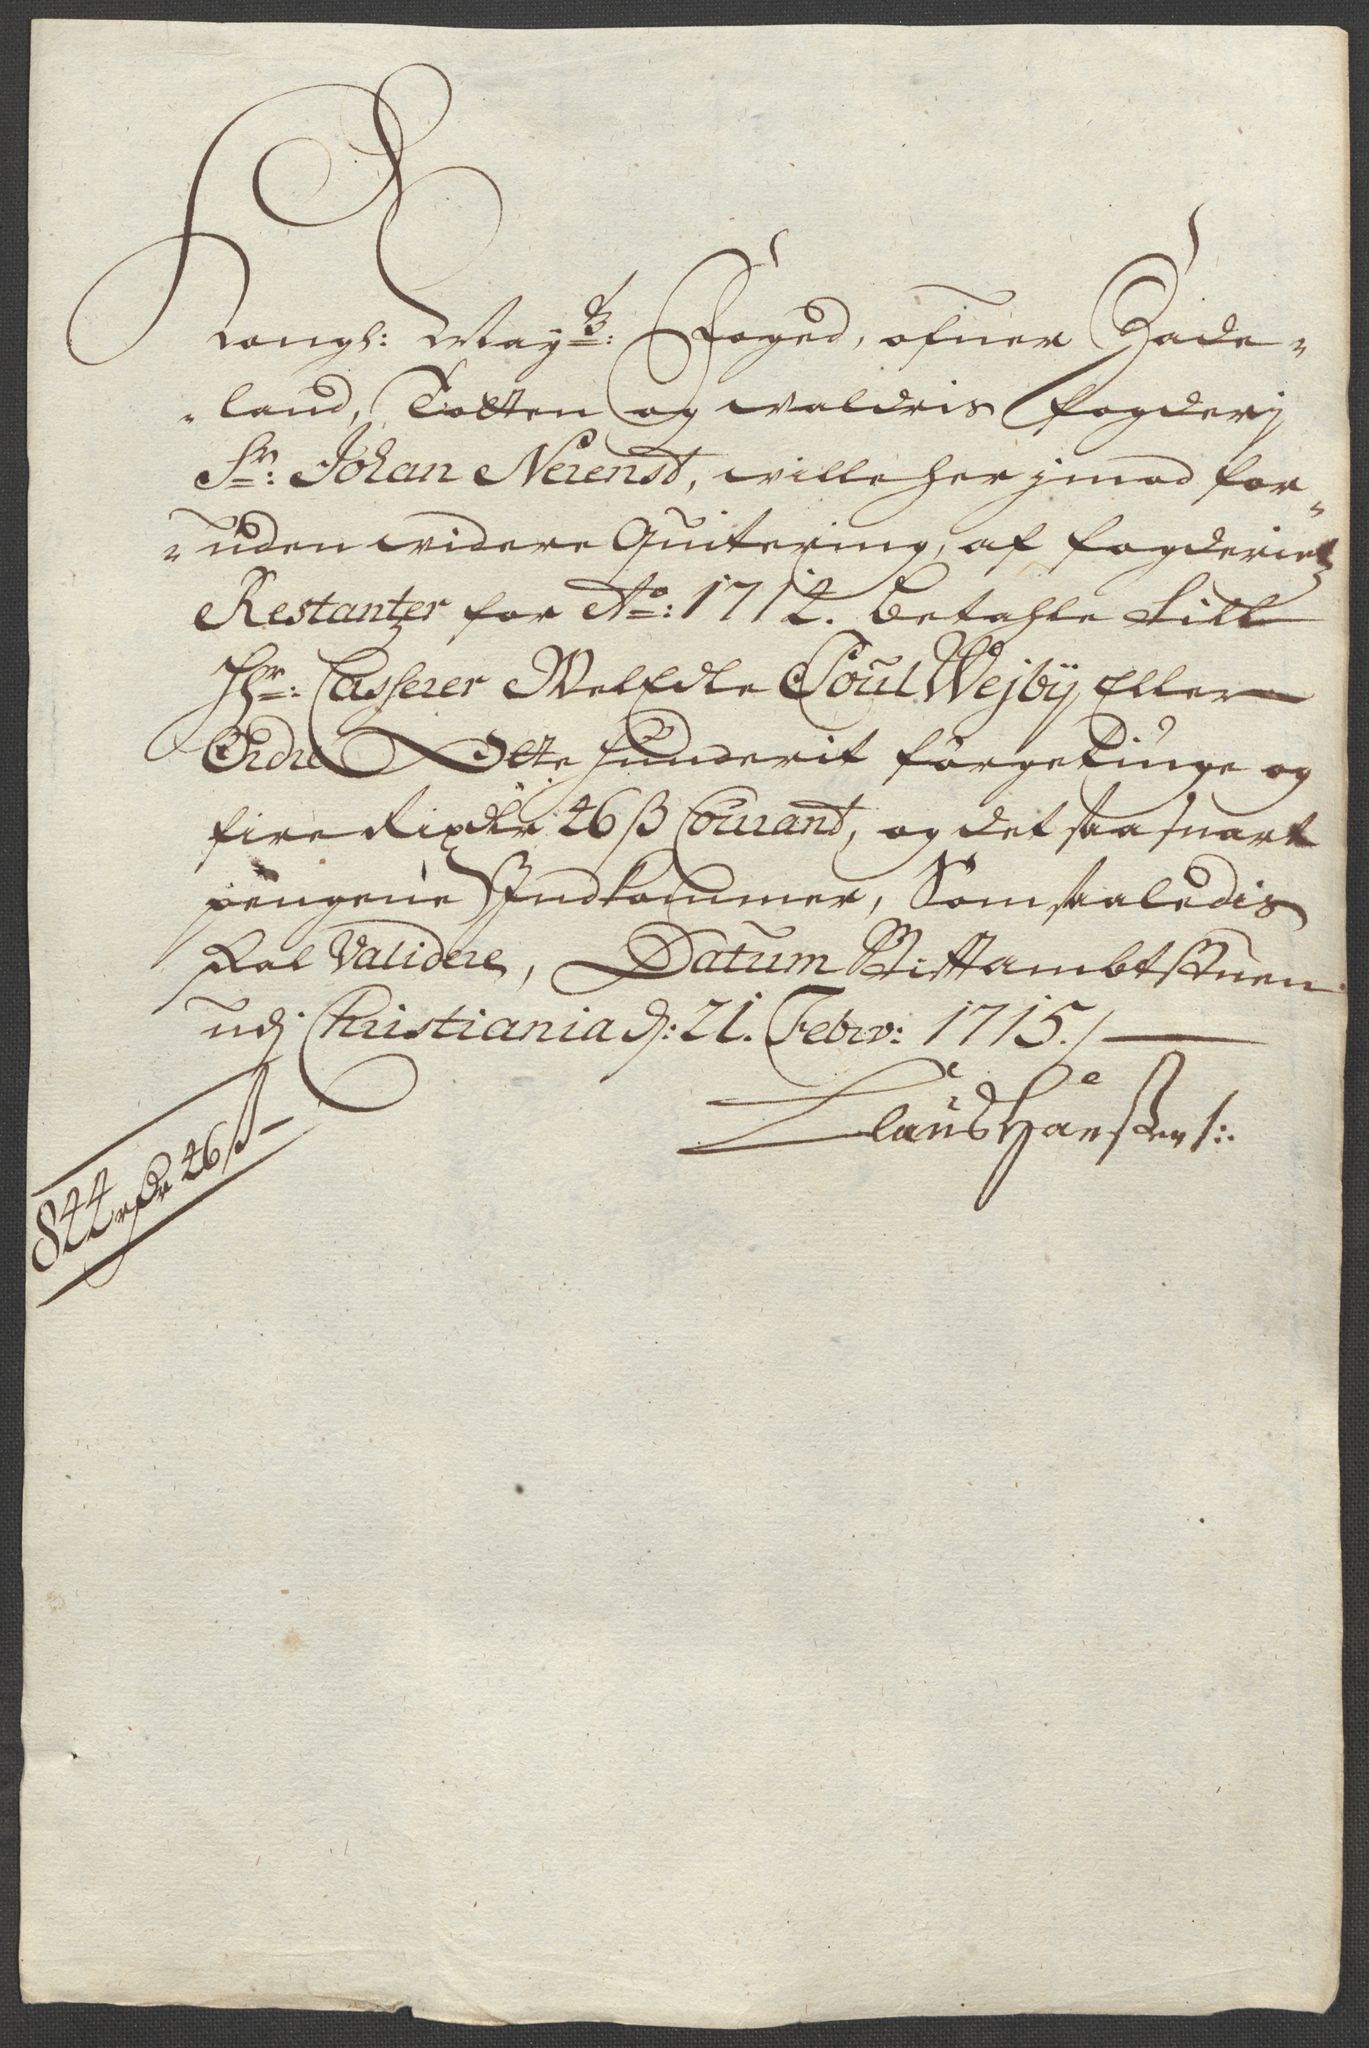 Kongl: May.tz: Foged, ofuer Hade-
land, Totten og Waldris fogderj
Sr: Johan Neuenst, wille her jmod for-
uden widere Quitering, af fogderietz
Restantzer for Ao: 1712. betahle till
Hr: Casserer WelEdle Poul Wejby Eller
Ordre Otte hunderit førgetiuge og
fire Rixdlr 26 ß Courant, og det saa snart
pengene Jndkommer, Som saaledis
skal Validere, Datum Stiftambtstuen
udj Christiania d: 21. Febrv: 1715./
Claus Hansen
844 rdr 26 ß